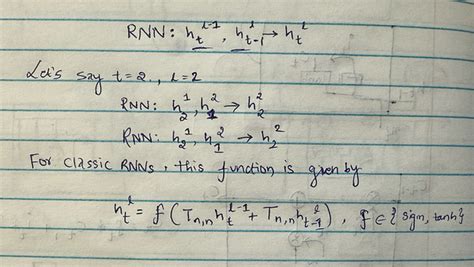 RNN: h_t^{l-1}, h_{t-1}^l → h_t^l
Let's say t=2, l=2
RNN: h_2^1, h_1^2 → h_2^2
RNN: h_2^1, h_1^2 → h_2^2
For classic RNNs, this function is given by
h_t^l = f(T_{n,n} h_t^{l-1} + T_{n,n} h_{t-1}^l), f ∈ {sigm, tanh}